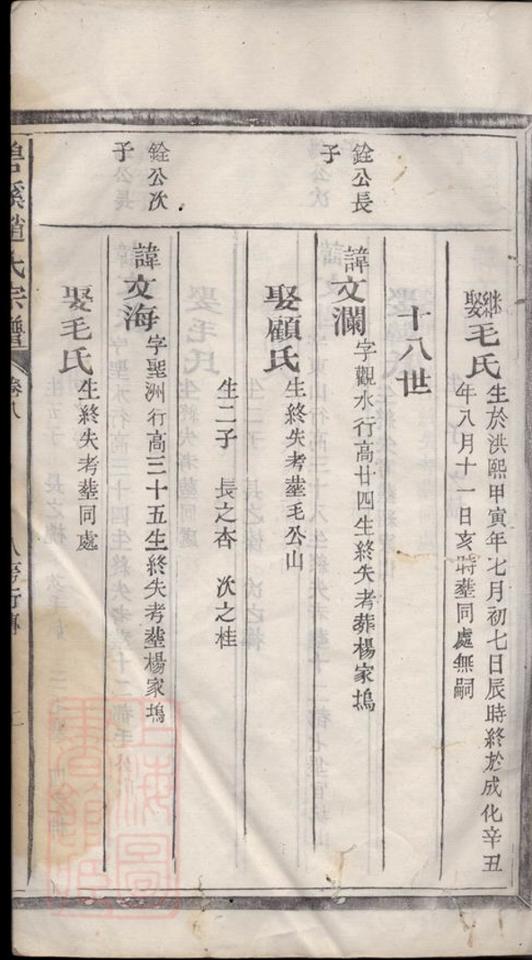 継娶毛氏
生於洪熙甲寅年七月初七日辰時終於成化辛丑
年八月十一日亥時塟同處無嗣
十八世
銓公長
子
諱文瀾
字觀水行高廿四生終失考葬楊家塢
娶顧氏
生終失考塟毛公山
生二子 長之杏 次之桂
銓公次
子
諱文海
字聖洲行高三十五生終失考塟楊家塢
娶毛氏
生終失考塟同處
碧溪趙氏宗譜
卷八